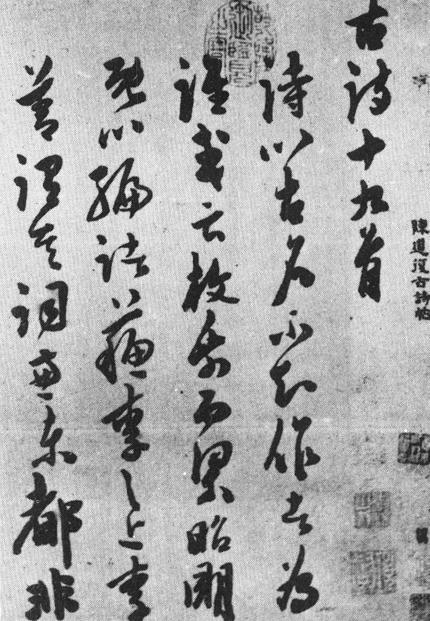 陳道復古詩帖
古詩十九首
詩以古名不知作者為
誰或云枚乘而梁昭明
既以編諸蘇李之上李
善謂其詞兼東都非